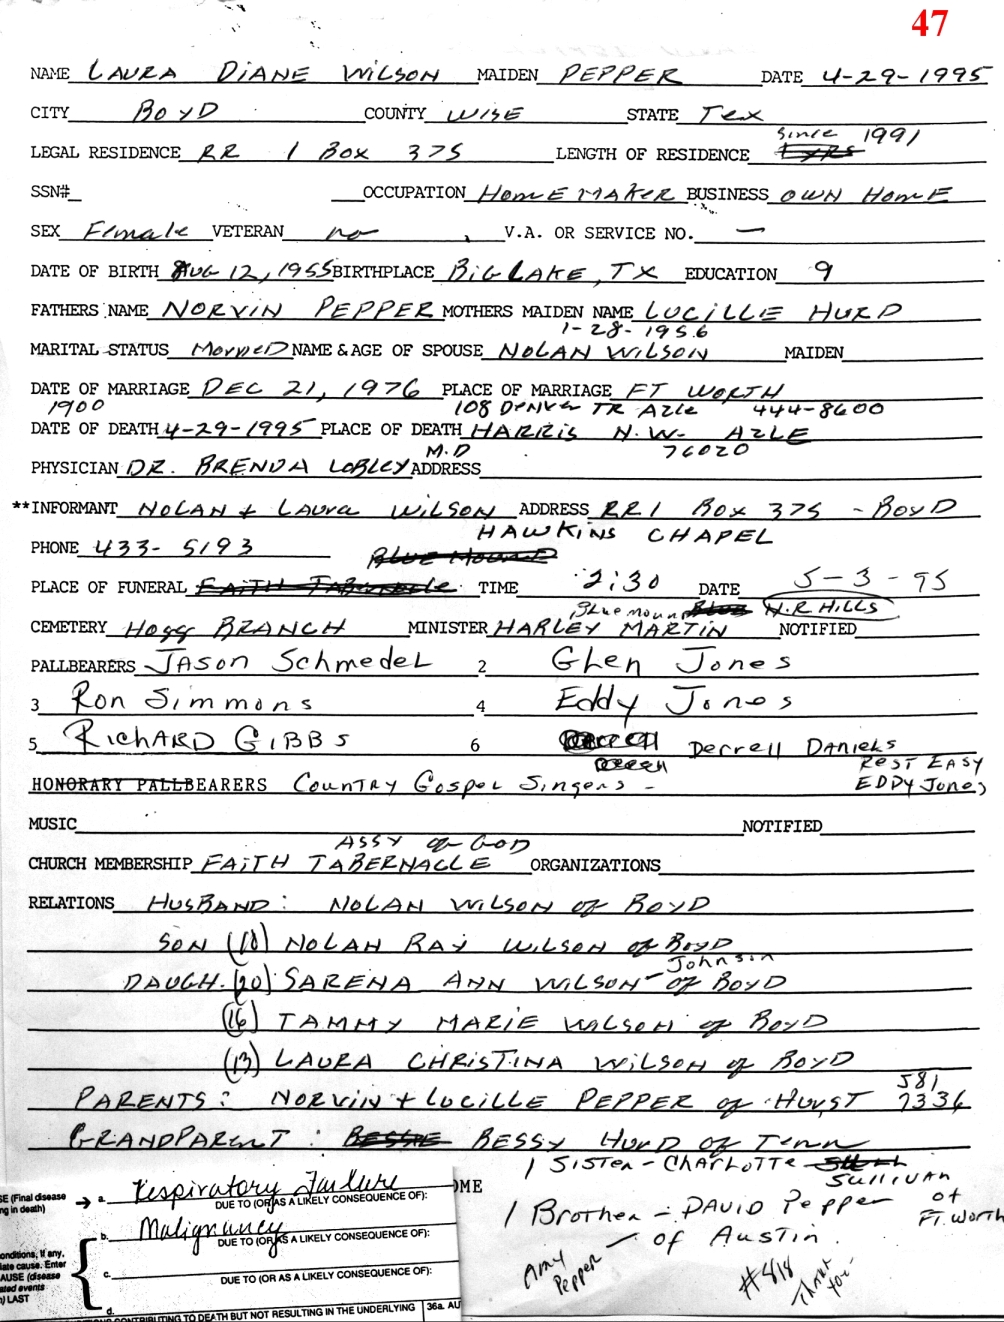 47
NAME LAURA DIANE WILSON MAIDEN PEPPER DATE 4-29-1995
CITY BOYD COUNTY WISE STATE Tex
since 1991
LEGAL RESIDENCE RR 1 BOX 375 LENGTH OF RESIDENCE
SSN# OCCUPATION HOMEMAKER BUSINESS OWN HOME
SEX Female VETERAN no V.A. OR SERVICE NO. —
DATE OF BIRTH AUG 12, 1955 BIRTHPLACE BIG LAKE, TX EDUCATION 9
FATHERS NAME NORVIN PEPPER MOTHERS MAIDEN NAME LUCILLE HURD
1-28-1956
MARITAL STATUS MARRIED NAME & AGE OF SPOUSE NOLAN WILSON MAIDEN
DATE OF MARRIAGE DEC 21, 1976 PLACE OF MARRIAGE FT WORTH
1900 108 DENVER TR AZLE 444-8600
DATE OF DEATH 4-29-1995 PLACE OF DEATH HARRIS N.W. AZLE
M.D 76020
PHYSICIAN DR. BRENDA LOBLEY ADDRESS
**INFORMANT NOLAN + Laura WILSON ADDRESS RR1 BOX 375 - BOYD
HAWKINS CHAPEL
PHONE 433-5193 BLUE MOUND
PLACE OF FUNERAL FAITH TABERNACLE TIME 2:30 DATE 5-3-95
Blue mound N.R. HILLS
CEMETERY HOGG BRANCH MINISTER HARLEY MARTIN NOTIFIED
PALLBEARERS JASON SCHMEDEL 2 Glen Jones
3 Ron Simmons 4 Eddy Jones
5 RICHARD GIBBS 6 Derrell DANIELS
REST EASY
HONORARY PALLBEARERS COUNTRY Gospel Singers - EDDY Jones
MUSIC NOTIFIED
ASSY of GOD
CHURCH MEMBERSHIP FAITH TABERNACLE ORGANIZATIONS
RELATIONS HUSBAND: NOLAN WILSON of BOYD
SON (18) NOLAN RAY WILSON of BOYD
Johnson
DAUGH. (20) SARENA ANN WILSON of BOYD
(16) TAMMY MARIE WILSON of BOYD
(13) LAURA CHRISTINA WILSON of BOYD
581
PARENTS: NORVIN + LUCILLE PEPPER of HURST 7336
GRANDPARENT: BESSIE BESSY HURD OF Tenn
1 SISTER - CHARLOTTE
SULLIVAN
of
FT. WORTH
1 Brother - DAVID Pepper
of AUSTIN.
Amy
Pepper
#818
Thank
You
OME
SE (Final disease
ng in death)
a. respiratory Failure
DUE TO (OR AS A LIKELY CONSEQUENCE OF):
b. Malignancy
DUE TO (OR AS A LIKELY CONSEQUENCE OF):
onditions, if any,
iate cause. Enter
AUSE (disease
ated events
) LAST
c.
DUE TO (OR AS A LIKELY CONSEQUENCE OF):
d.
CONTRIBUTING TO DEATH BUT NOT RESULTING IN THE UNDERLYING 36a. AU